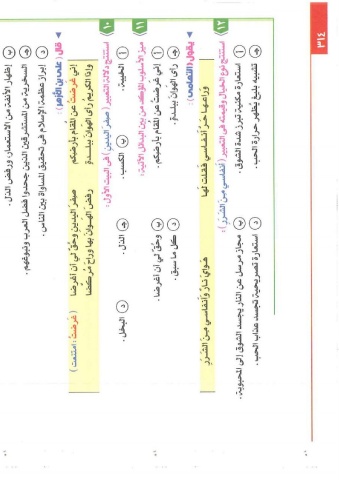 ب إظهار الأنفة من الاستعمار، ورفض الذل.
ج السخرية من المستشرقين الذين جحدوا فضل العرب ونبوغهم.
د إبراز عظمة الإسلام في تحقيق المساواة بين الناس.
قال (علي بن
إني غرضت عن المقام بأرضكم صفر اليدين وحق لي أن أغرضا (غرضت: امتنعت)
وإذا الكريم رأى الهوان ببلدة رفض الهوان بها وراح مركضا
١٠ استنتج دلالة التعبير (صفر اليدين) في البيت الأول.
أ الخيبة. ب الكسب. ج الذل. د البخل.
١١ ميز الأسلوب المؤكد من بين البدائل الآتية:
أ إني غرضت عن المقام بأرضكم. ب وحق لي أن أغرضا.
ج رأى الهوان ببلدة. د كل ما سبق.
يقول (التهامي):
وراعها حر أنفاسي فقلت لها هواي نار وأنفاسي من الشرر
١٢ استنتج نوع الخيال وقيمته في التعبير (أنفاسي من الشرر):
أ استعارة مكنية تبرز شدة الشوق. ب مجاز مرسل عن النار يجسد الشوق إلى المحبوبة.
ج تشبيه بليغ يظهر حرارة الحب. د استعارة تصريحية تجسد عذاب الحب.
٣١٤